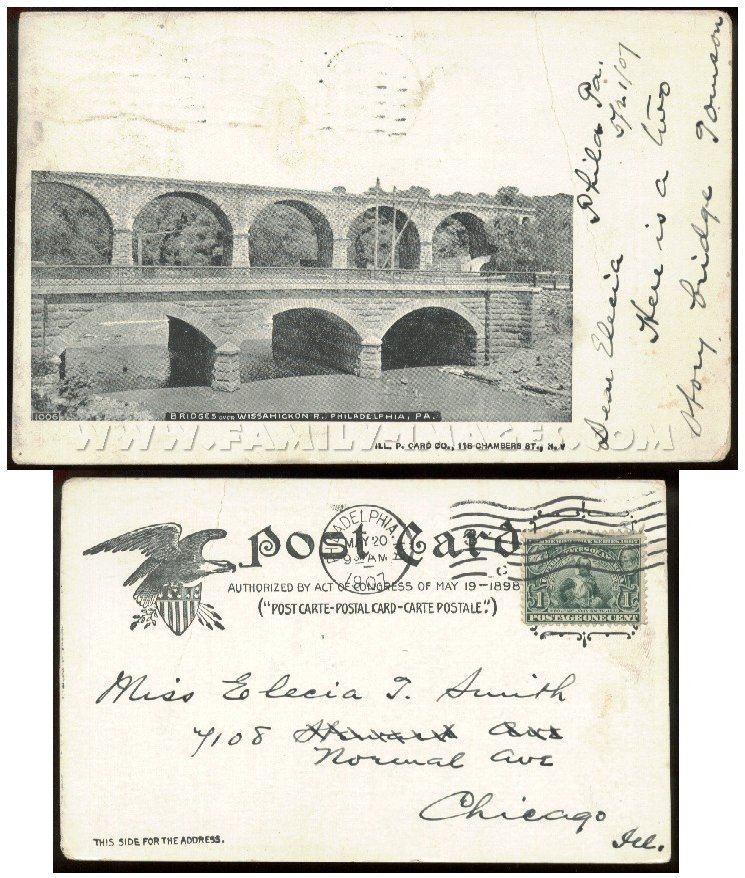 Phila Pa.
Dear Elecia
Here is a two
story bridge
1006
BRIDGES OVER WISSAHICKON R., PHILADELPHIA, PA.
ILL. P. CARD CO., 118 CHAMBERS ST., N.Y
WWW.FAMILY-IMAGES.COM
Post Card
AUTHORIZED BY ACT OF CONGRESS OF MAY 19-1898
("POST CARTE-POSTAL CARD-CARTE POSTALE".)
PHILADELPHIA
MAY 20
9 AM
1907
1 1
POSTAGE ONE CENT
Miss Elecia T. Smith
7108
Normal Ave
Chicago
Ill.
THIS SIDE FOR THE ADDRESS.